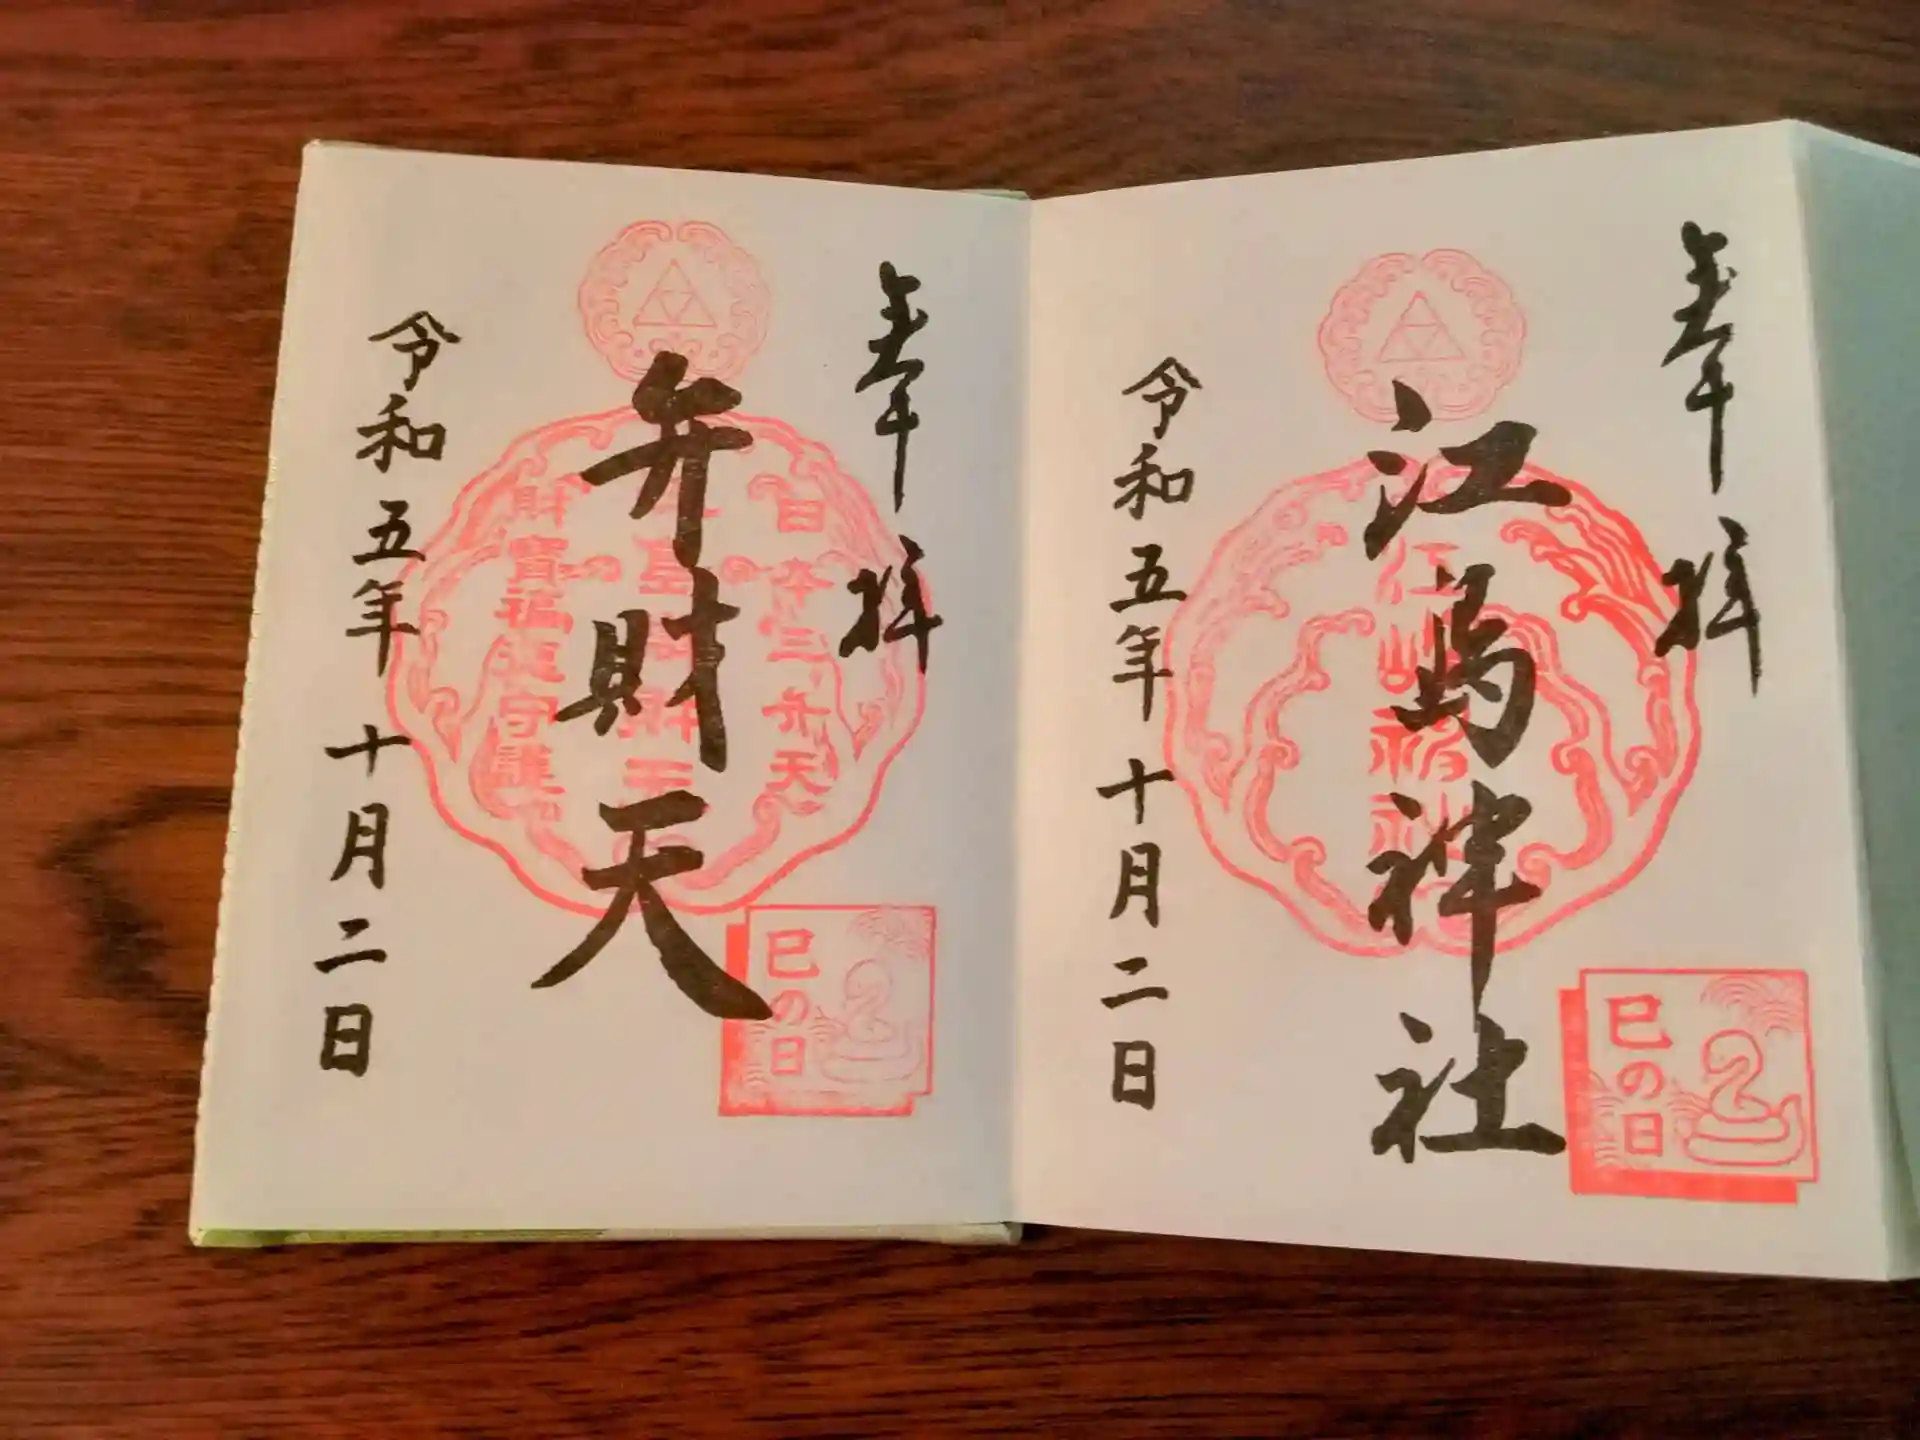 奉拝
江島神社
江島神社
巳の日
令和五年十月二日
奉拝
日本三弁天
弁財天
財寶福徳守護
巳の日
令和五年十月二日